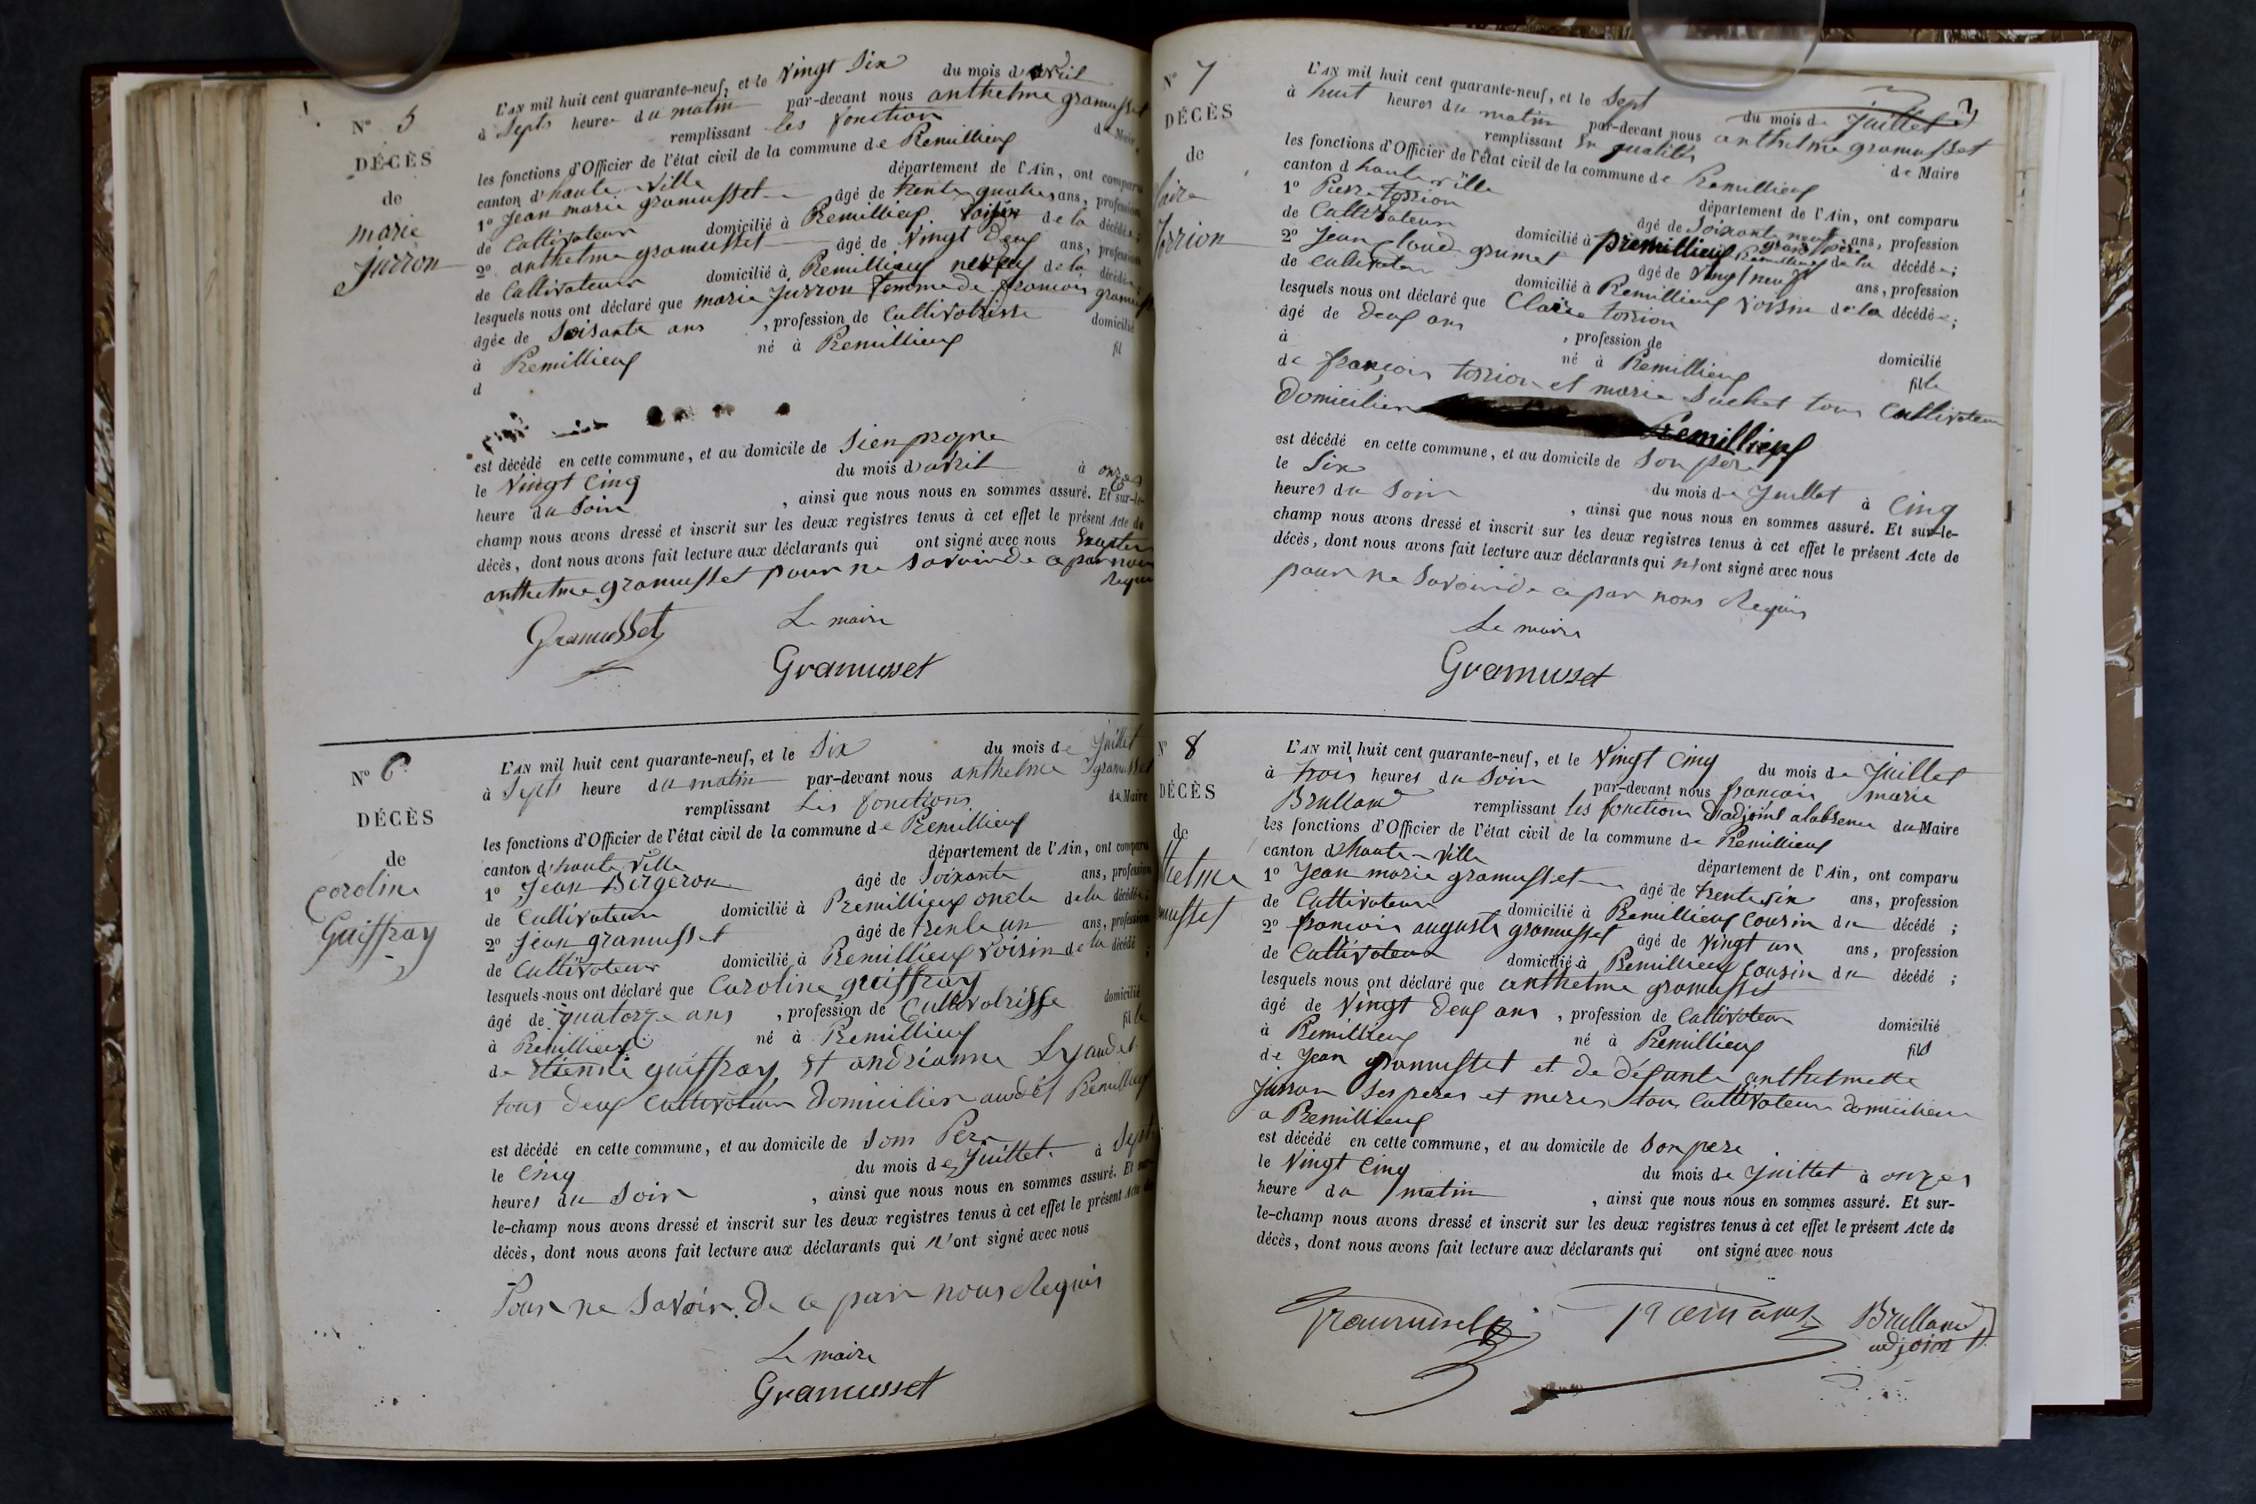 N° 5
DÉCÈS
de
marie
jurron
L'AN mil huit cent quarante-neuf, et le vingt six du mois d avril
à Sept heure du matin par-devant nous anthelme gramusset
remplissant les fonction de Maire
les fonctions d'Officier de l'état civil de la commune de Premillieu
canton d'haute-ville département de l'Ain, ont comparu
1° Jean marie gramusset âgé de trente quatre ans, profession
de Cultivateur domicilié à Premillieux voisin de la décédée;
2° anthelme gramusset âgé de vingt deux ans, profession
de Cultivateur domicilié à Premillieux neveux de la décédée;
lesquels nous ont déclaré que marie jurron femme de françois gramusset
âgée de Soixante ans , profession de Cultivatrisse domicilié
à Premillieux né à Premillieux fil
d
est décédé en cette commune, et au domicile de Sien propre
le vingt Cinq du mois d'avril à onzes
heure du Soir , ainsi que nous nous en sommes assuré. Et sur-le-
champ nous avons dressé et inscrit sur les deux registres tenus à cet effet le présent Acte de
décès, dont nous avons fait lecture aux déclarants qui ont signé avec nous Exepter
anthelme gramusset pour ne Savoir de ce par nous
requis
Le maire
Gramusset
Gramusset
N° 6
DÉCÈS
de
Caroline
Guiffray
L'AN mil huit cent quarante-neuf, et le Six du mois de juillet
à Sept heure du matin par-devant nous anthelme gramusset
remplissant Les fonctions de Maire
les fonctions d'Officier de l'état civil de la commune de Premillieux
canton d'haute ville département de l'Ain, ont comparu
1° Jean Bergeron âgé de Soixante ans, profession
de Cultivateur domicilié à Premillieux oncle de la décédée;
2° Jean gramusset âgé de trente un ans, profession
de Cultivateur domicilié à Premillieux voisin de la décédé ;
lesquels nous ont déclaré que Caroline guiffray
âgé de quatorze ans , profession de Cultivatrisse domicilié
à Premillieux né à Premillieux fille
de guiffray et andrianne
tous deux Cultivateur Domicilier audit Premillieux
est décédé en cette commune, et au domicile de Son Per
le Cinq du mois de Juillet à Sept
heures du Soir , ainsi que nous nous en sommes assuré. Et sur-
le-champ nous avons dressé et inscrit sur les deux registres tenus à cet effet le présent Acte de
décès, dont nous avons fait lecture aux déclarants qui n'ont signé avec nous
Pour ne Savoir De ce par nous Requis
Le maire
Gramusset
N° 7
DÉCÈS
de
laire
torrion
L'AN mil huit cent quarante-neuf, et le Sept du mois de juillet
à huit heures du matin par-devant nous anthelme gramusset
remplissant En qualités de Maire
les fonctions d'Officier de l'état civil de la commune de Premillieux
canton d haute ville département de l'Ain, ont comparu
1° Pierre torrion âgé de Soixante neuf ans, profession
de Cultivateur domicilié à premillieux grand père de la décédée;
2° Jean Claude grumet âgé de vingt neuf ans, profession
de Cultivateur domicilié à Premillieux voisin de la décédée;
lesquels nous ont déclaré que Claire torrion
âgé de Deux ans , profession de domicilié
à né à Premillieux fille
de françois torrion et marie Suchet tous Cultivateur
Domicilier Premillieux
est décédé en cette commune, et au domicile de Son père
le Six du mois de Juillet à Cinq
heures du Soir , ainsi que nous nous en sommes assuré. Et sur-le-
champ nous avons dressé et inscrit sur les deux registres tenus à cet effet le présent Acte de
décès, dont nous avons fait lecture aux déclarants qui n'ont signé avec nous
pour ne Savoir de ce par nous Requis
Le maire
Gramusset
N° 8
DÉCÈS
de
thelme
musset
L'AN mil huit cent quarante-neuf, et le vingt Cinq du mois de Juillet
à trois heures du Soir par-devant nous françois marie
Brulland remplissant les fonction d'adjoint a labsence du Maire
les fonctions d'Officier de l'état civil de la commune de Premillieux
canton d'haute-ville département de l'Ain, ont comparu
1° Jean marie gramusset âgé de trente six ans, profession
de Cultivateur domicilié à Premillieux Cousin du décédé ;
2° françois auguste gramusset âgé de vingt un ans, profession
de Cultivateur domicilié à Premillieux Cousin du décédé ;
lesquels nous ont déclaré que anthelme gramusset
âgé de vingt Deux ans , profession de Cultivateur domicilié
à Premillieux né à Premillieux fils
de Jean gramusset et de défunte anthelmette
jurron Ses peres et meres tous Cultivateur domicilier
a Premillieux
est décédé en cette commune, et au domicile de Son pere
le vingt Cinq du mois de juillet à onzes
heure du matin , ainsi que nous nous en sommes assuré. Et sur-
le-champ nous avons dressé et inscrit sur les deux registres tenus à cet effet le présent Acte de
décès, dont nous avons fait lecture aux déclarants qui ont signé avec nous
Gramusset
Brulland
adjoint